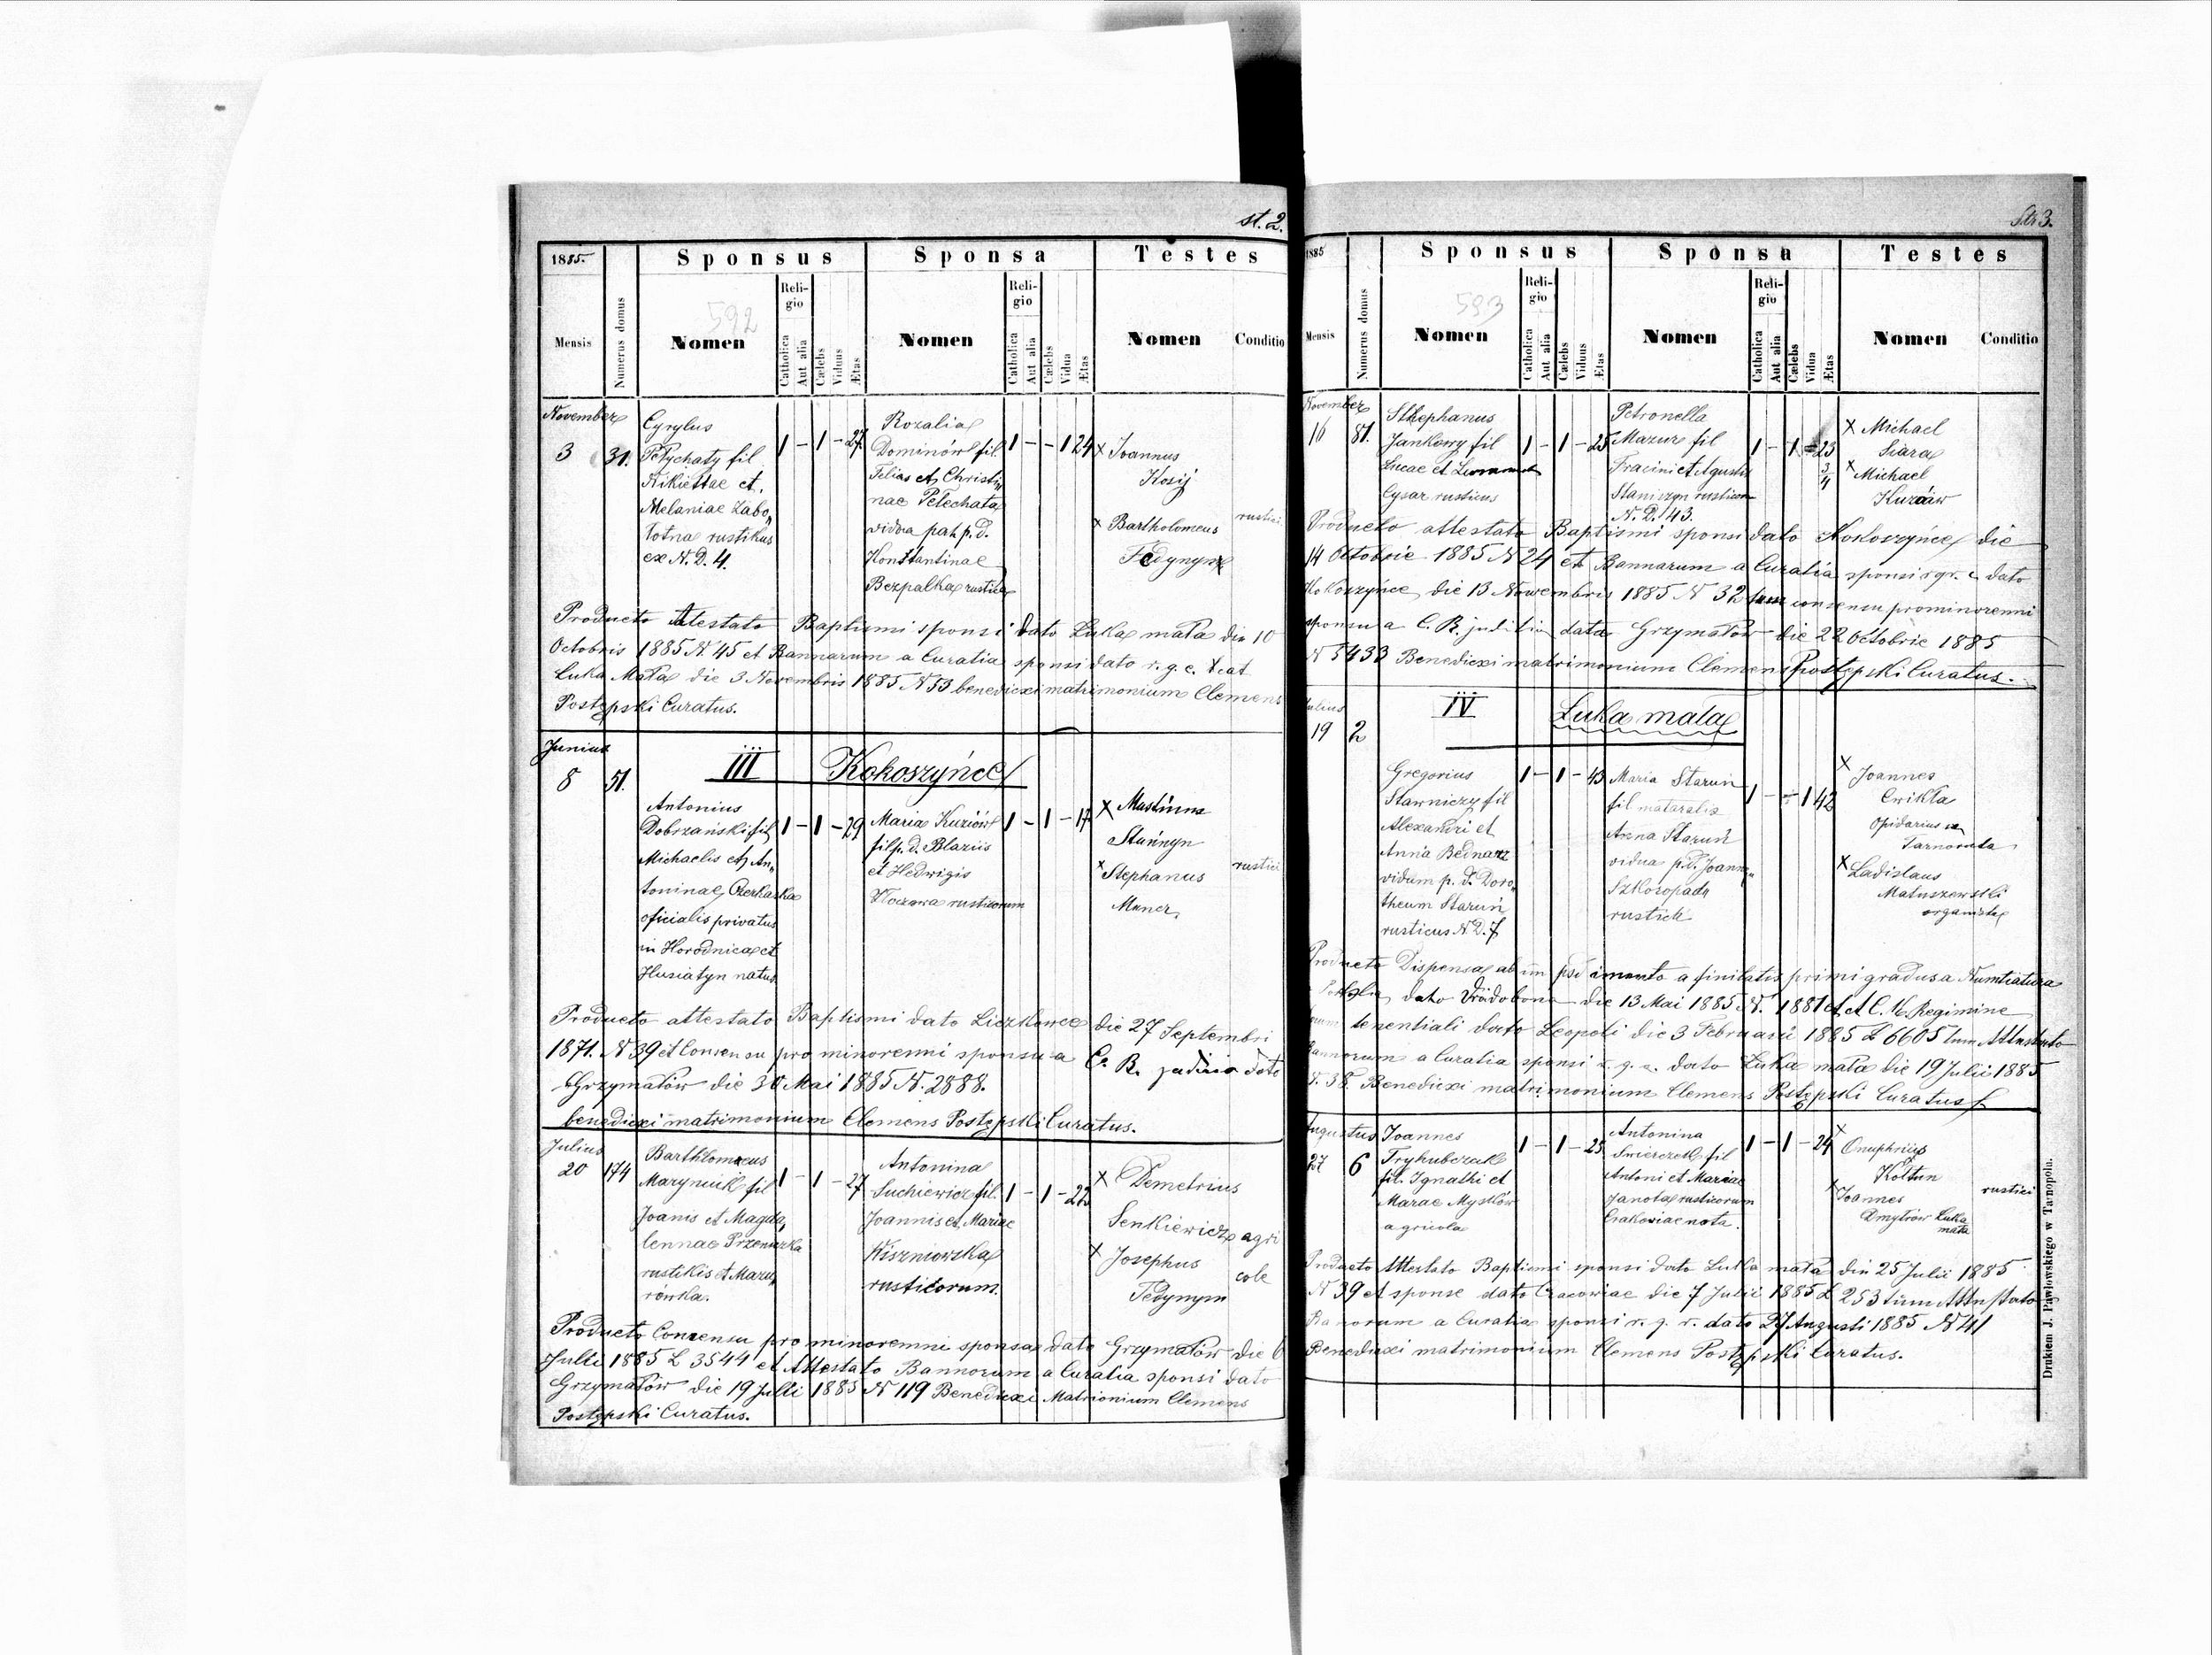 st. 2.
1885.
Sponsus
Sponsa
Testes
Mensis
Numerus domus
592
Nomen
Religio
Catholica
Aut alia
Cælebs
Viduus
Ætas
Nomen
Religio
Catholica
Aut alia
Cælebs
Vidua
Ætas
Nomen
Conditio
November
3
31.
Cyrylus
Pełychaty fil
Nikiettae et
Melaniae Zabo„
łotna rustikus
ex N. D. 4.
1 – 1 – 27
Rozalia
Dominów fil.
Felias et Christi„
nae Pelechata
vidva p. d.
Konstantinae
Bezpalka rustica
1 – – 1 24
x Joannus
Kosij
x Bartholomeus
Fedynyn
rustici
Producto Atestato Baptismi sponsi dato Luka mała die 10
Octobris 1885 N 45 et Bannarum a Curatia sponsi dato r. g. c.
Luka Mała die 3 Novembris 1885 N 53 benedicxi matrimonium Clemens
Postępski Curatus.
Junius
8
51.
III Kokoszyńce
Antonius
Dobrzański fil
Michaelis et An„
toninae Czerkaska
oficialis privatus
in Horodnica et
Husiatyn natus
1 – 1 – 29
Maria Kuziów
fil p. d. Blaziis
et Hedwigis
rusticorum
1 – 1 – 17
x
x Stephanus
rustici
Producto attestato Baptismi dato Liczkowce die 27 Septembri
1871. N 39 et Consensu pro minorenni sponsu a C. R. judicio dato
Grzymałów die 30 Mai 1885 N. 2888.
benedicxi matrimonium Clemens Postępski Curatus.
Julius
20
174
Bartholomeus
Maryniuk fil
Joanis et Magda„
lennae
rustikis et Mazu„
rówka.
1 – 1 – 27
Antonina
Suchiewicz fil.
Joannis et Mariae
Wiszniowska
rusticorum.
1 – 1 – 22
x Demetrius
Senkiewicz
x Josephus
Fedynym
agri
cole
Producto Consensu pro minorenni sponsae dato Grzymałów die 6
Julli 1885 L 3544 et Attestato Bannorum a Curatia sponsi dato
Grzymałów die 19 Julli 1885 N 119 Benedicxi Matrionium Clemens
Postępski Curatus.
Str 3.
1885
Sponsus
Sponsa
Testes
Mensis
Numerus domus
593
Nomen
Religio
Catholica
Aut alia
Cælebs
Viduus
Ætas
Nomen
Religio
Catholica
Aut alia
Cælebs
Vidua
Ætas
Nomen
Conditio
November
16
81.
Sthephanus
Jankowy fil
Lucae et
Cysar rusticus
1 – 1 – 25
Petronella
Mazur fil
Staniszyn
N. D. 143.
1 – 1 – 23
3/4
x Michael
Siara
x Michael
Kuzaiw
Producto attestato Baptismi sponsi dato Kokoszyńce die
14 Octobrie 1885 N 24 et Bannarum a Curatia sponsi r. gr. c. dato
Kokoszyńce die 13 Nowembris 1885 N 32 consensu prominorenni
sponsu a C. R. data Grzymałów die 22 Octobrie 1885
N 5433 Benedicxi matrimonium Clemens Postępski Curatus.
Julius
19
2
IV Luka mala
Gregorius
Stawniczy fil
Alexandri et
Anna Bednarz
vidum p. d. Doro„
theum Staruń
rusticus N D. 7
1 – 1 – 43
Maria Staruń
fil
Anna Staruń
vidua p. d. Joann„
Szkoropada
1 – – 1 42
x Joannes
Cwikła
Tarnoruda
x Ladislaus
Matuszewski
organista
Producto Dispensa ab impedimento afinitatis primi gradus a Numtiatura
dato die 13 Mai 1885 N. 1881 et A C. K. Regimine
tenentiali dato Leopoli die 3 Februarii 1885 L 6605 tum Attestato
Bannorum a Curatia sponsi r. g. c. dato Luka mała die 19 Julii 1885
N. 38 Benedicxi matrimonium Clemens Postępski Curatus
Augustus
27
6
Joannes
Tryhubczak
fil. Ignatki et
Marae Mysków
agricola
1 – 1 – 25
Antonina
Swierczek fil
Antoni et Mariae
Janota rusticorum
Crakoviae nata.
1 – 1 – 24
x Onuphrius
Kołtun
x Joannes
Dmytrów Luka
mała
rustici
Producto Attestato Baptismi sponsi dato Luka mała die 25 Julii 1885
N 39 et sponse dato Cracowiae die 7 Julii 1885 L 253 tum Attestato
Banorum a Curatia sponsi r. g. r. dato 27 Augusti 1885 N 41
Benedicxi matrimonium Clemens Postępski Curatus.
Drukiem J. Pawłowskiego w Tarnopolu.